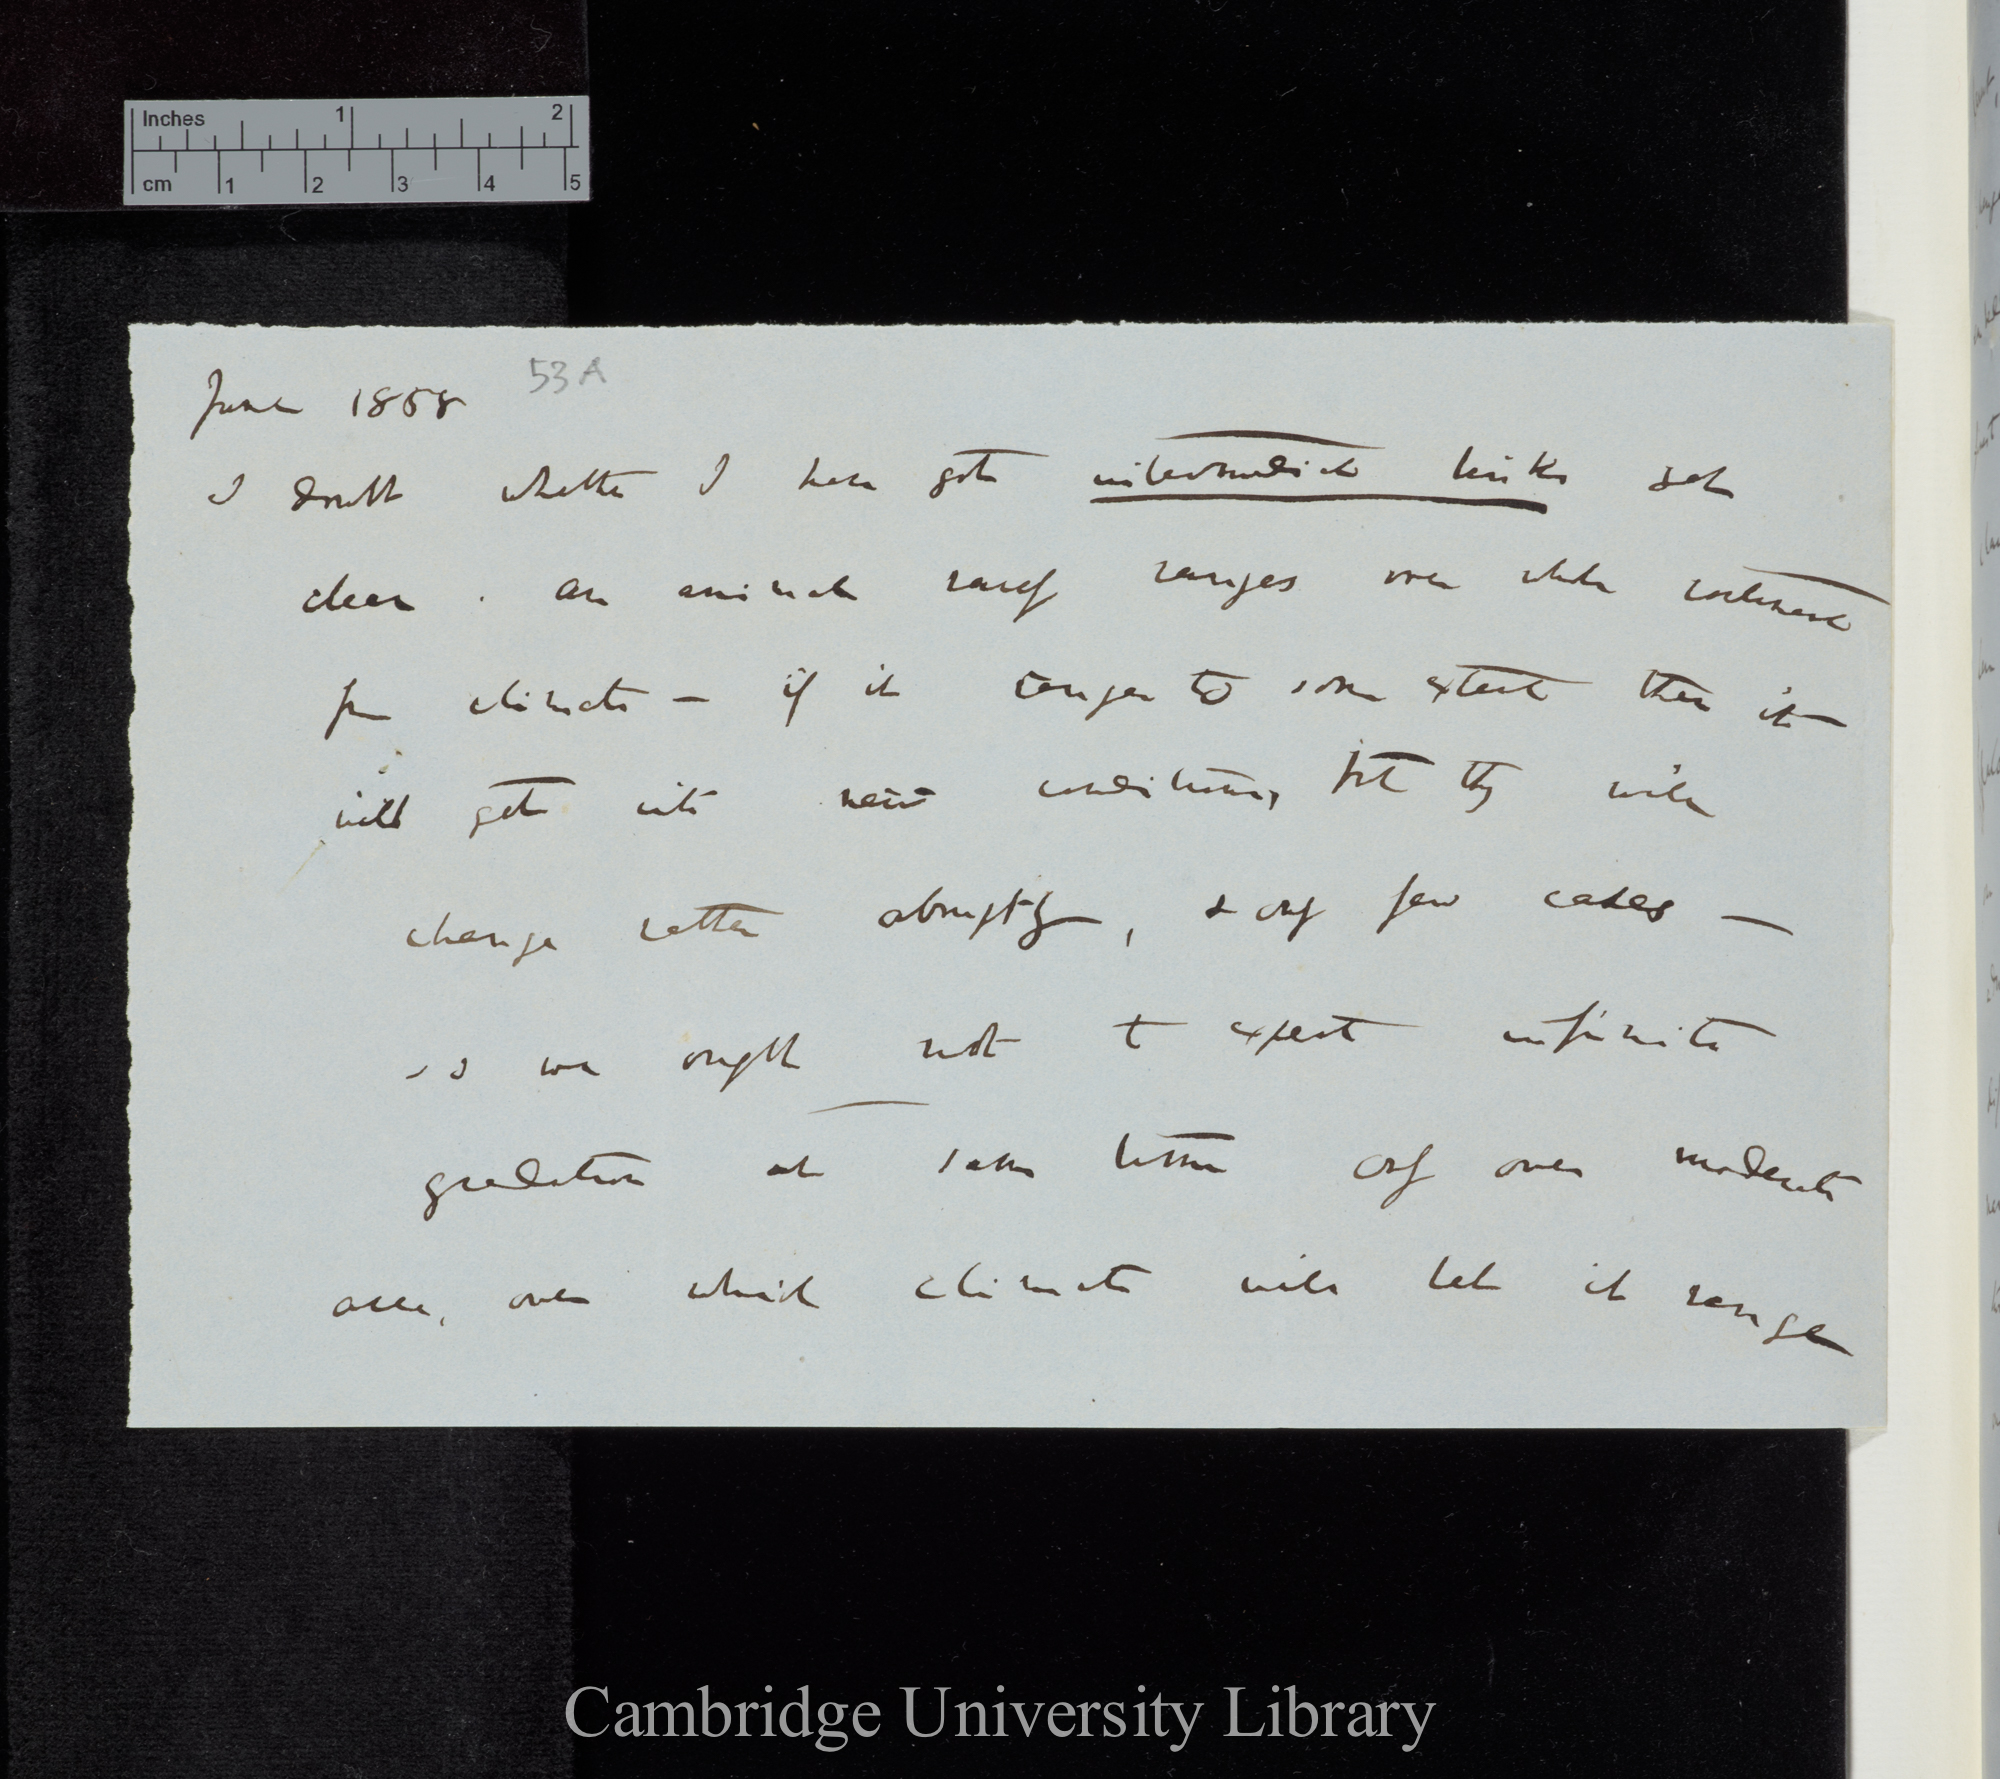 Inches 1 2
cm 1 2 3 4 5
53A
June 1858
I doubt whether I have got intermediate links yet
clear. an animal rarely ranges over whole continent
from climate — if it ranges to some extent then it
will get into new conditions, but they will
change rather abruptly, & only few cases —
so we ought not to expect infinite
gradation at same time only over moderate
area, over which climate will let it range
Cambridge University Library